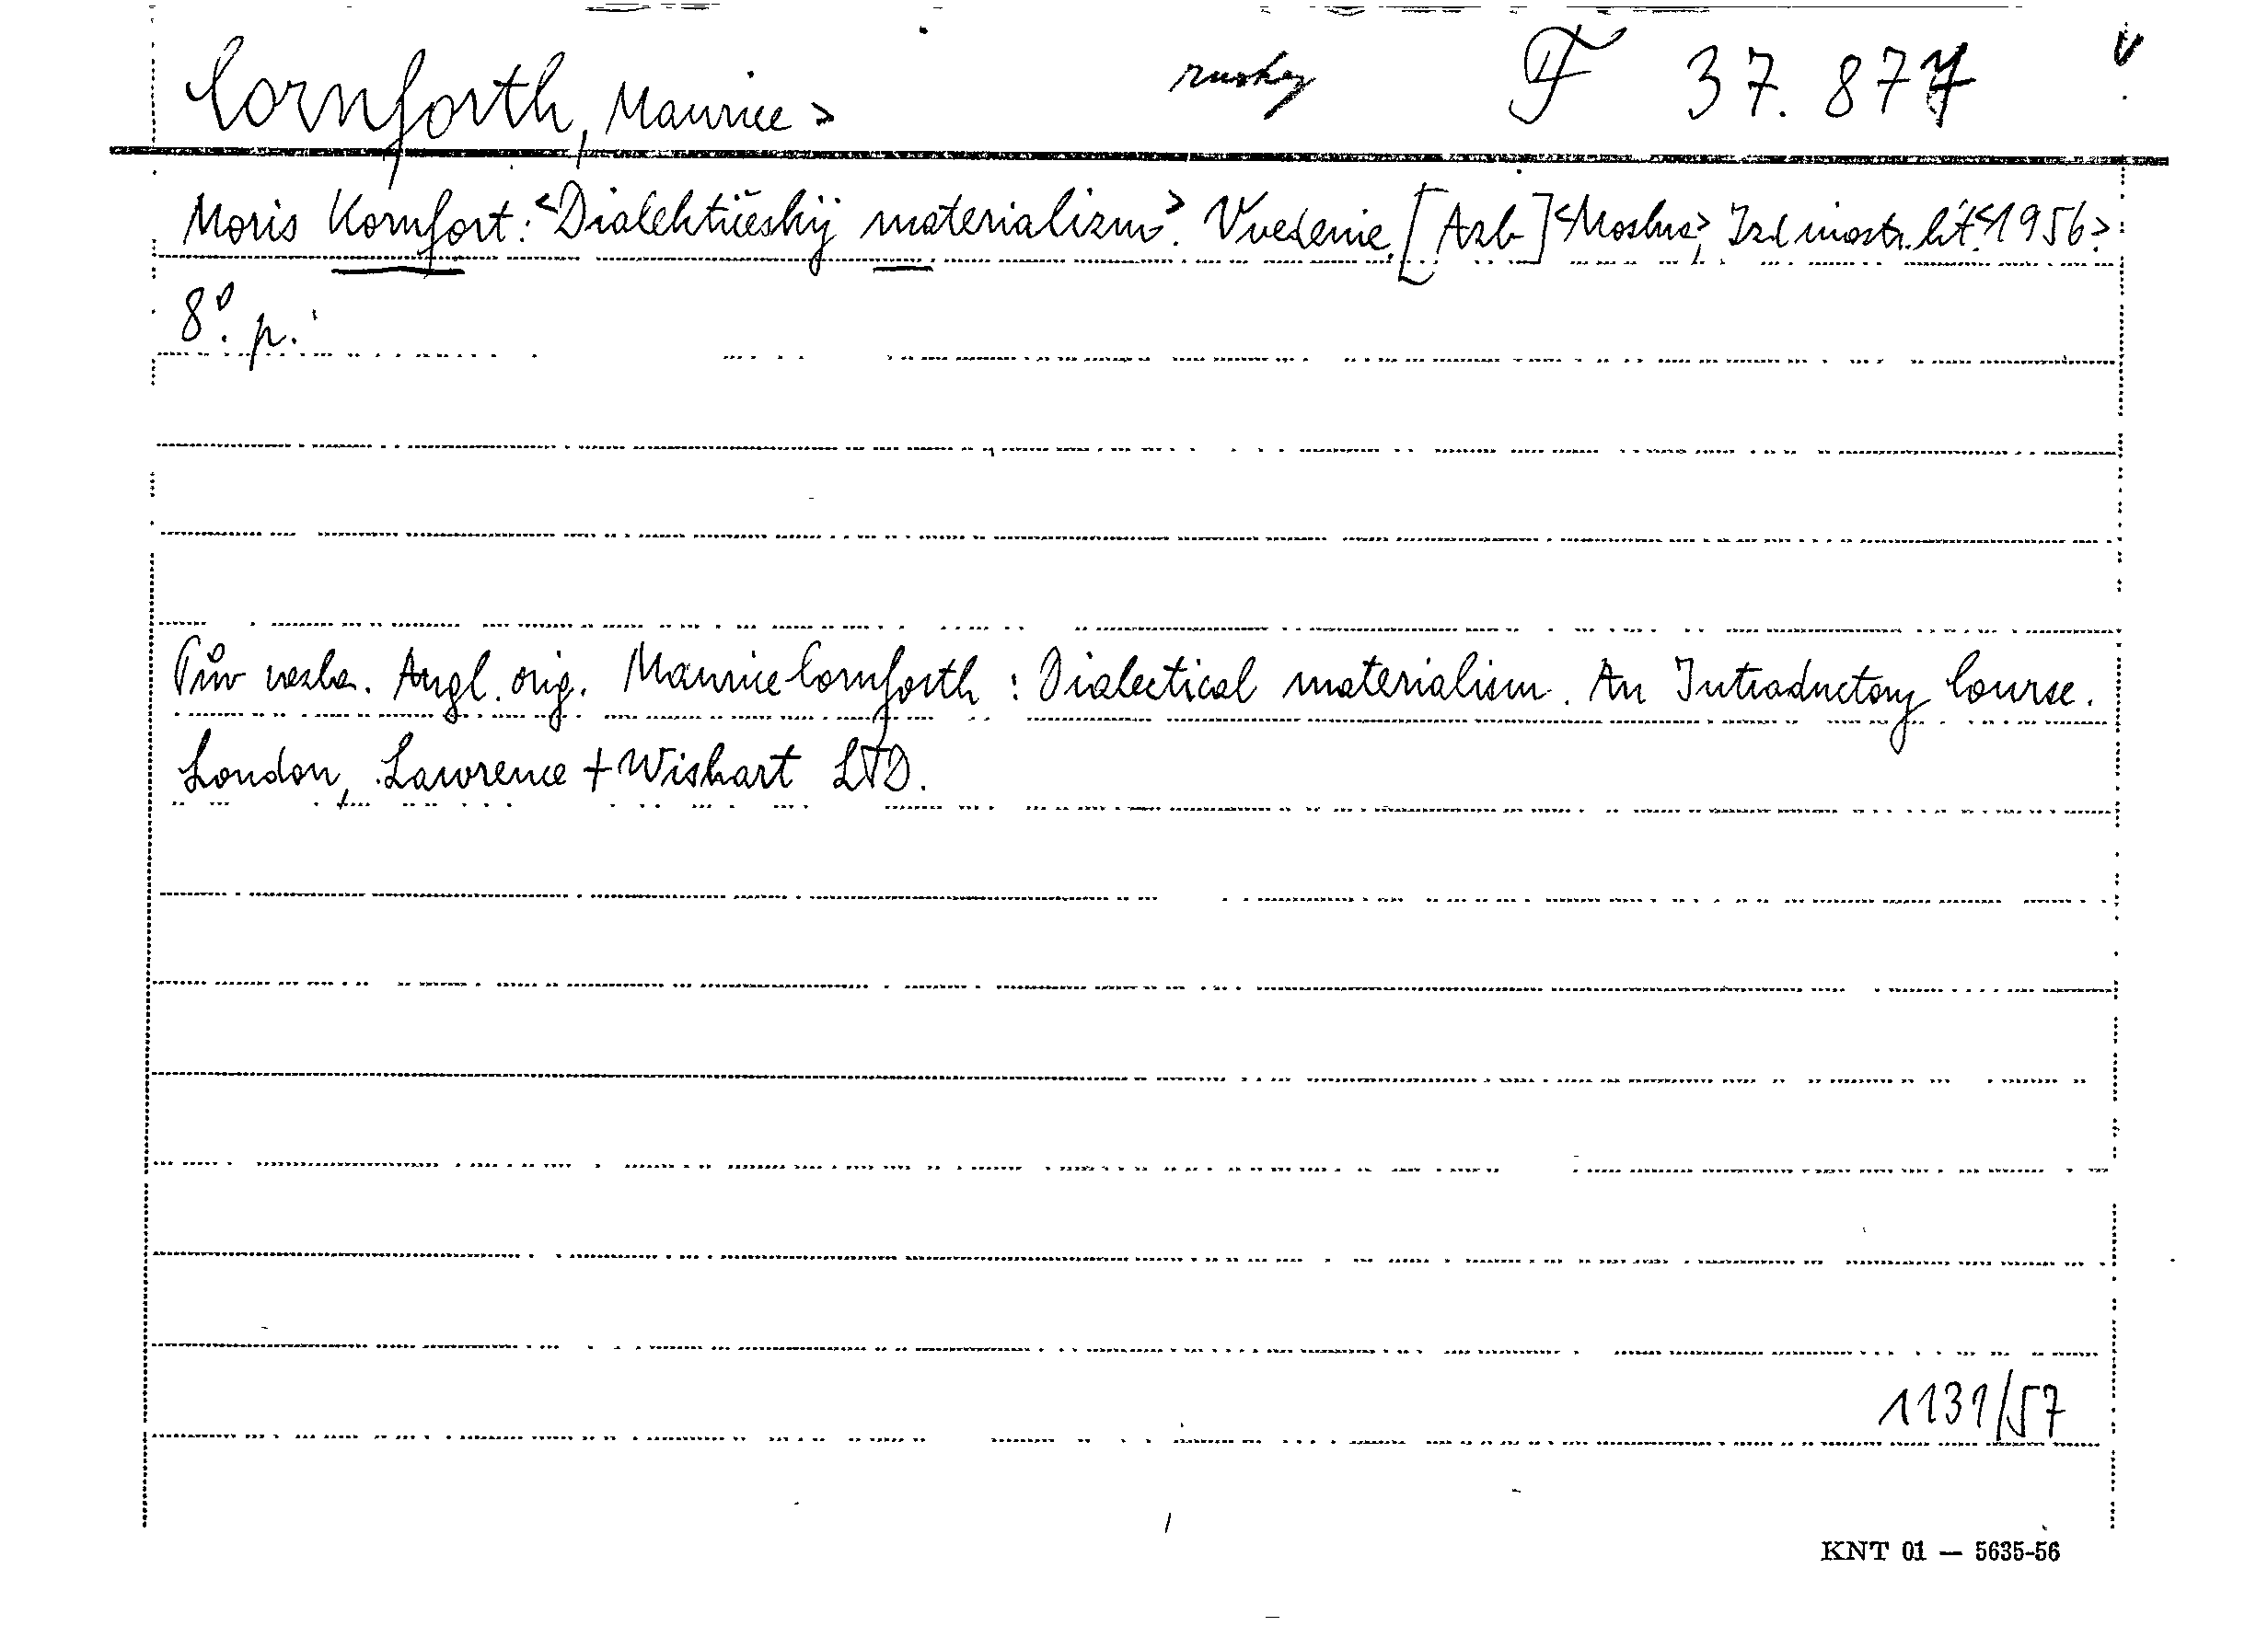 Cornforth, Maurice > rusky F 37.877 v
Moris Kornfort: <Dialektičeskij materializm>. Vvedenie. [Azb] <Moskva>, Izd inostr. lit. <1956>.
8°. p.
Pův vazba. Angl. orig. Maurice Cornforth : Dialectical materialism. An Introductory Course.
London, Lawrence + Wishart LTD.
1131/57
KNT 01 — 5635-56